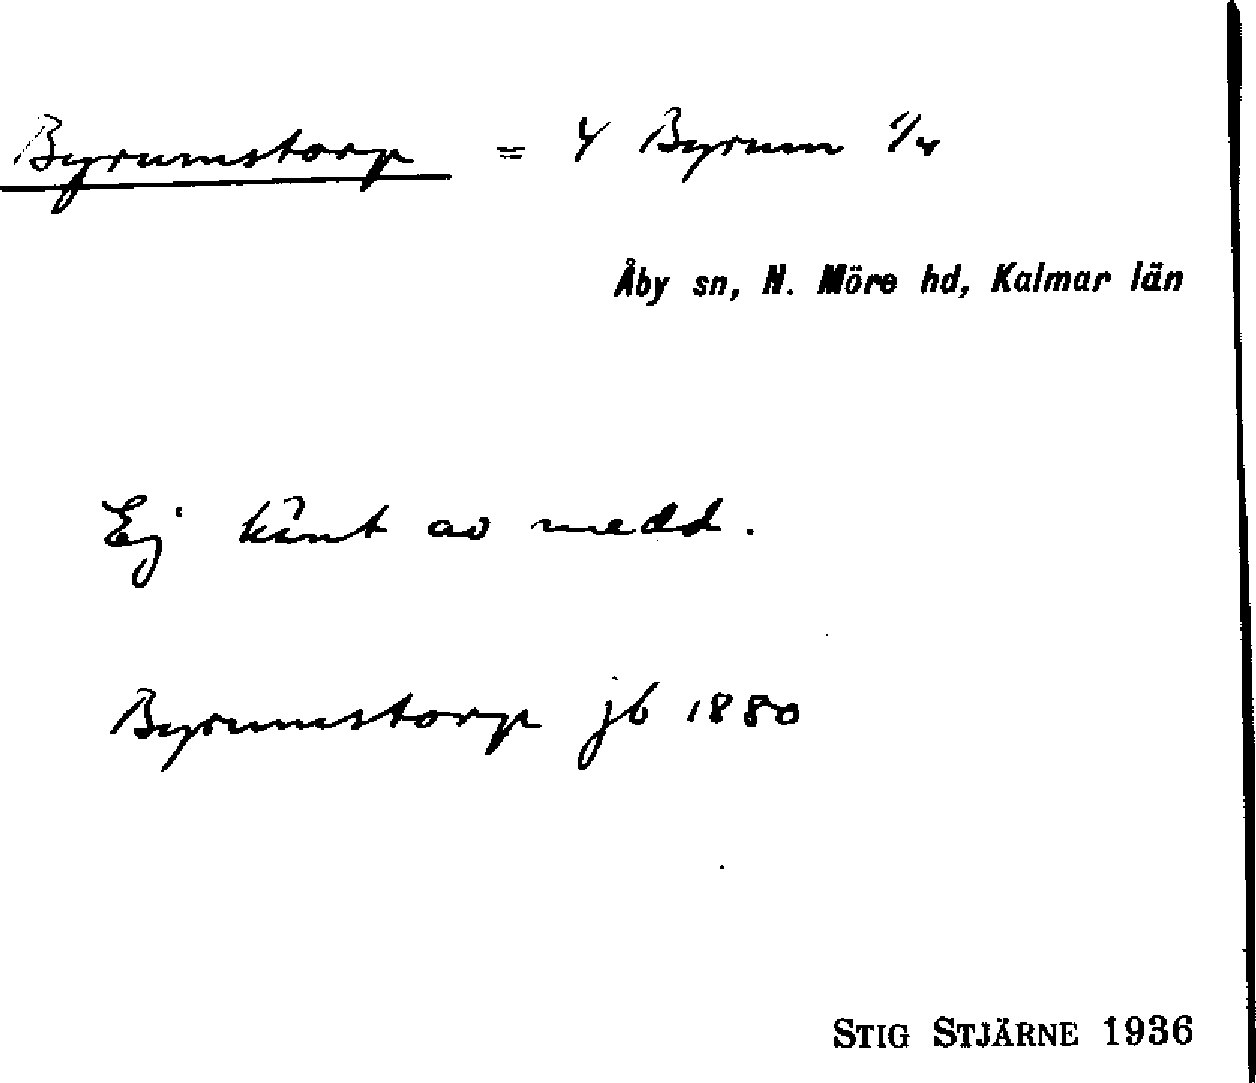 Byrumstorp = 4 Byrum 1/4
Åby sn, N. Möre hd, Kalmar län
Ej känt av medd.
Byrumstorp jb 1880
STIG STJÄRNE 1936